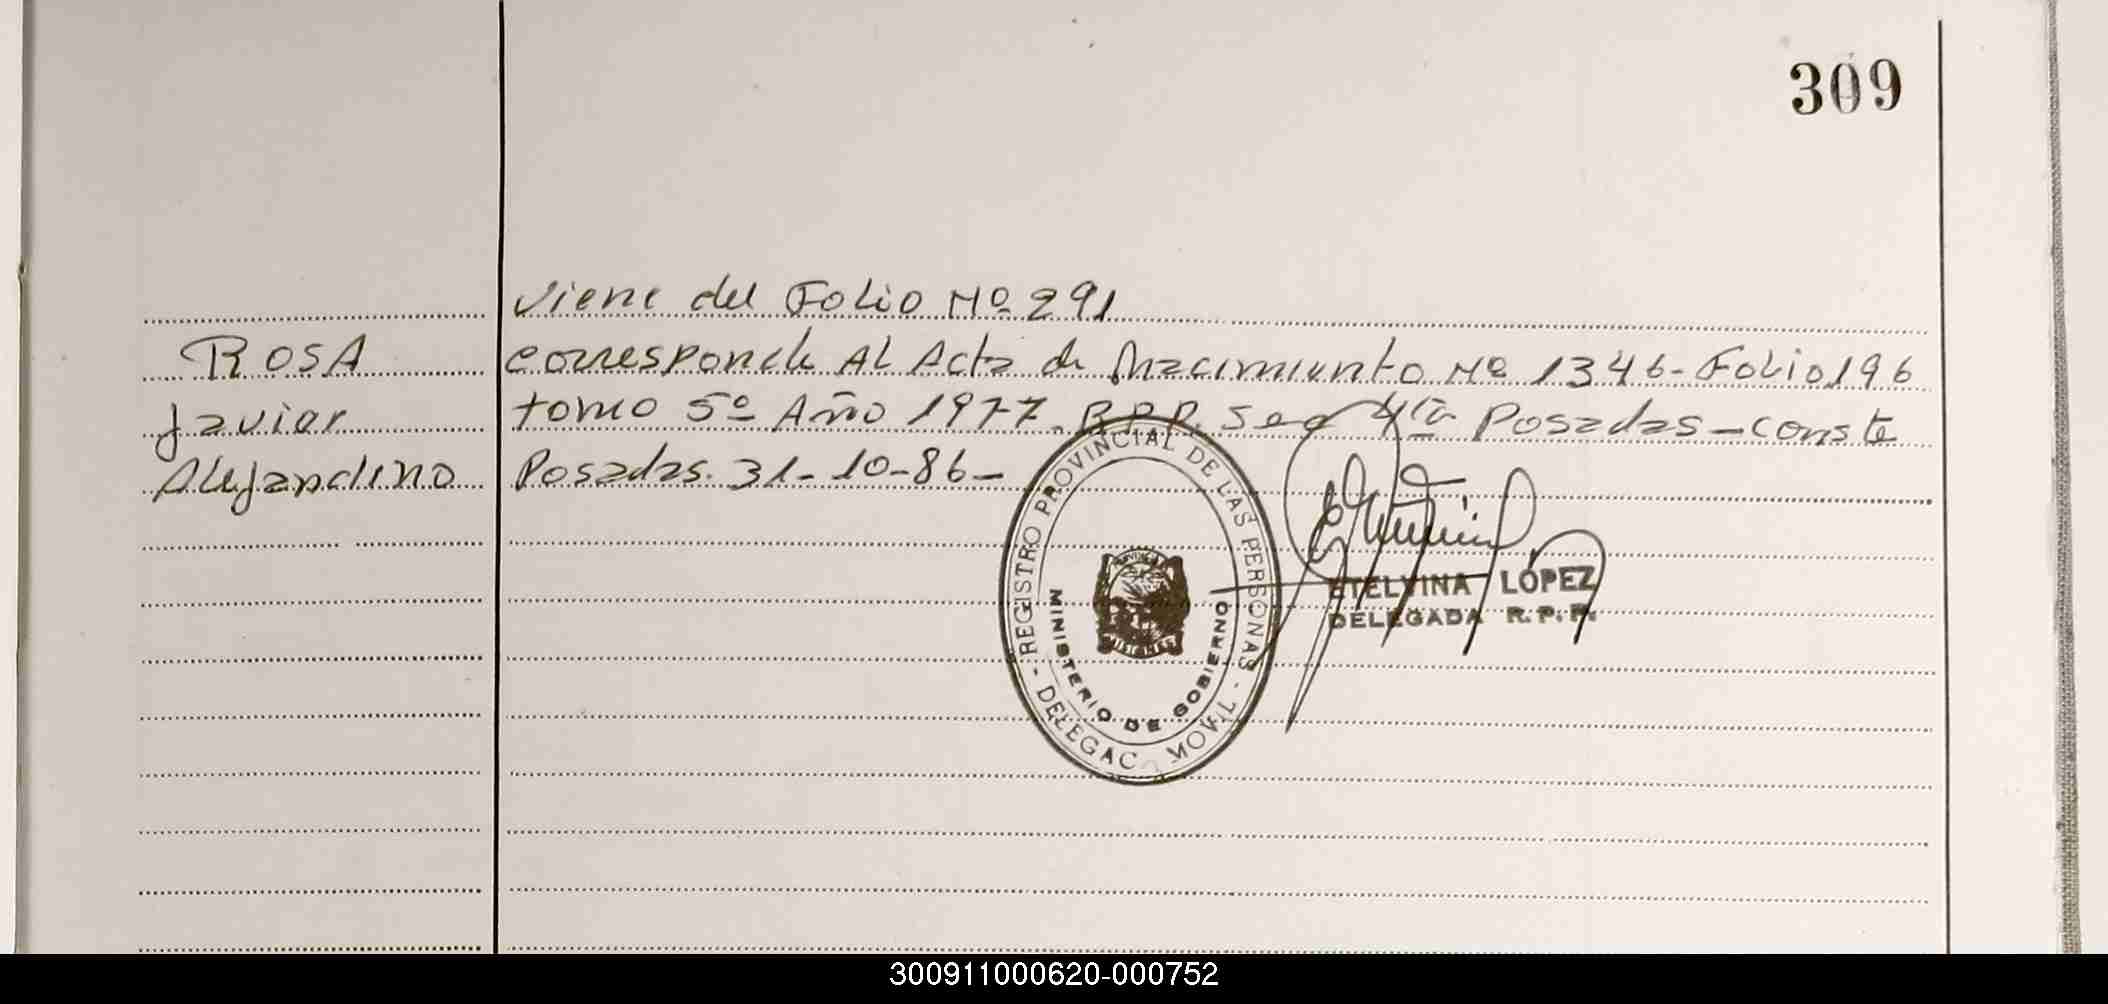 309
Viene del Folio Nº 291
ROSA corresponde Al Acta de Nacimiento Nº 1346-Folio 196
Javier tomo 5º Año 1977. R.P.P. Sec 4ta Posadas-conste
Alejandrino Posadas. 31-10-86-
REGISTRO PROVINCIAL DE LAS PERSONAS
MINISTERIO DE GOBIERNO
- DELEGAC. MOVIL -
MISIONES
ETELVINA LOPEZ
DELEGADA R.P.P.
300911000620-000752